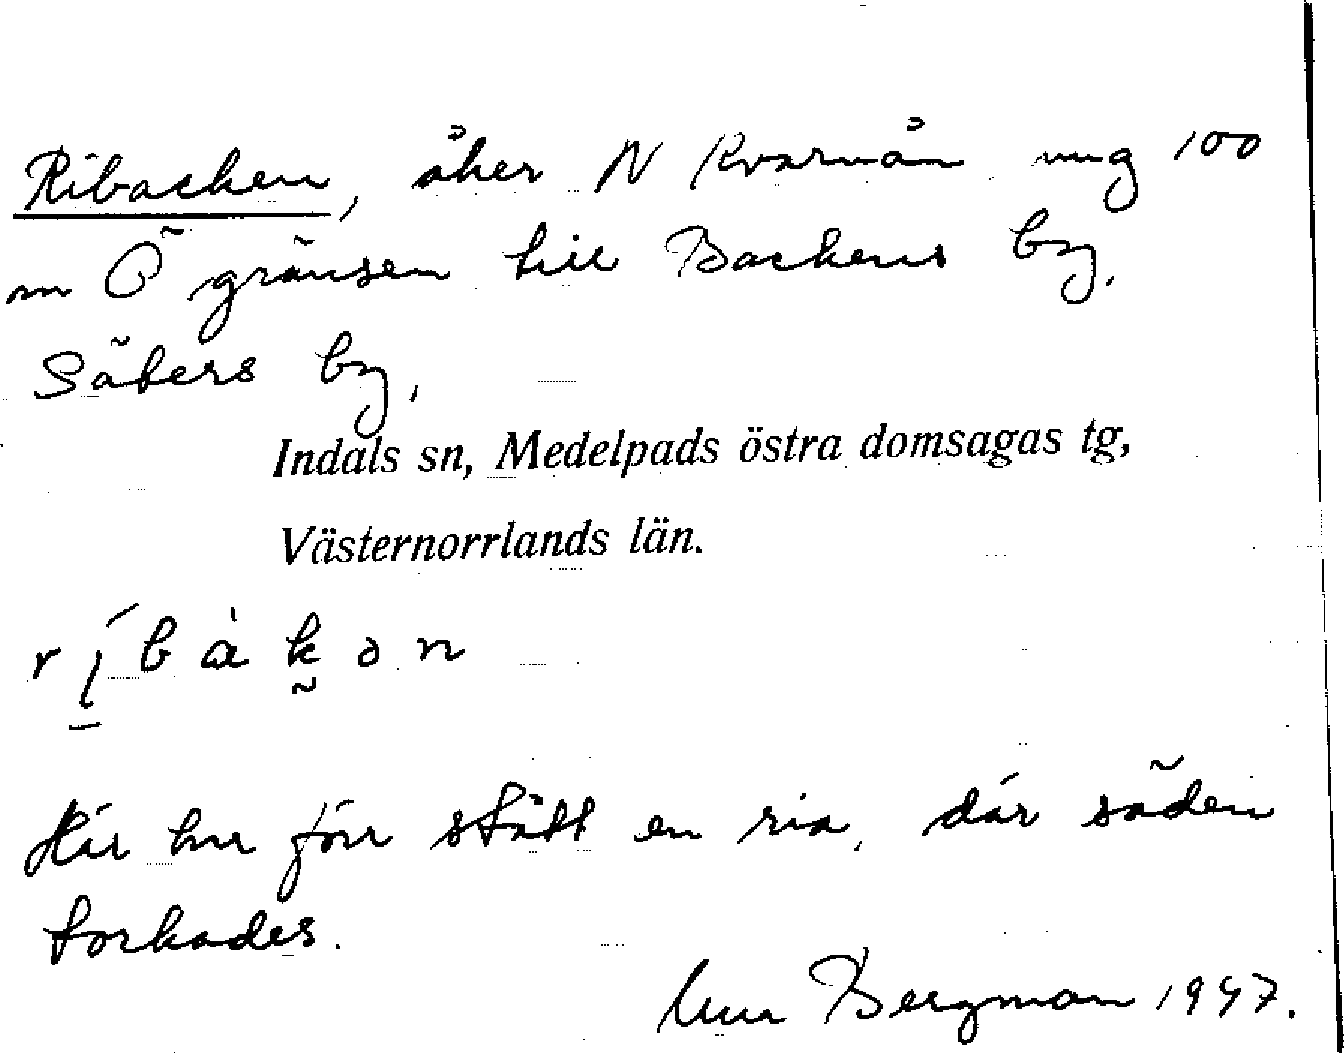 Ribacken, åker N Kvarnån ung 100
m Ö gränsen till Backens by,
Säters by,
Indals sn, Medelpads östra domsagas tg,
Västernorrlands län.
ríbàkən
Här har förr stått en ria, där säden
torkades.
Bergman 1947.